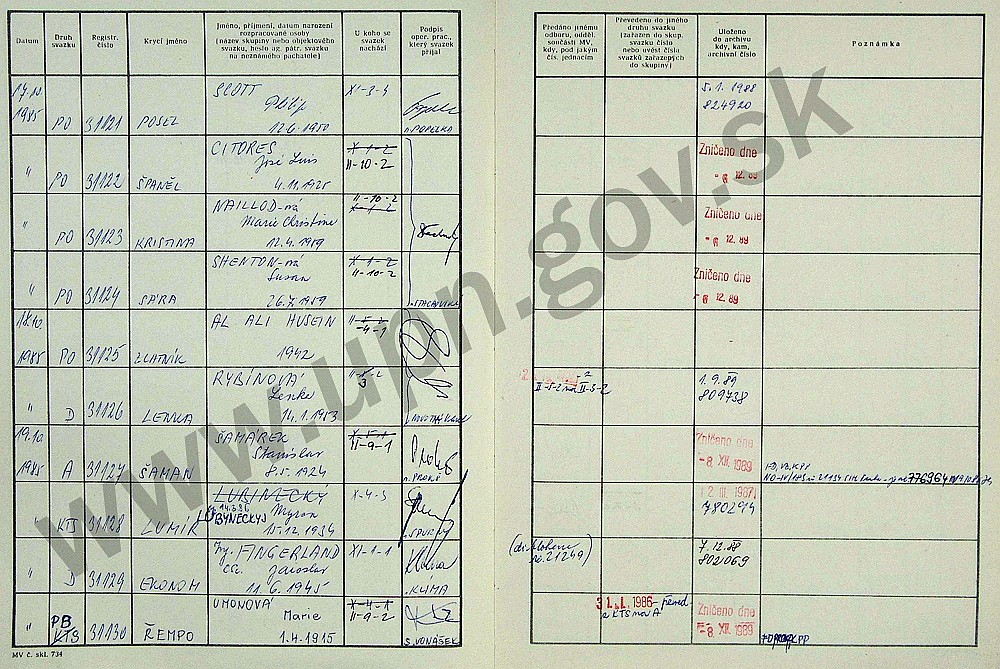 Datum
Druh
svazku
Registr.
číslo
Krycí jméno
Jméno, příjmení, datum narození
rozpracované osoby
(název skupiny nebo objektového
svazku, heslo ag. pátr. svazku
na neznámého pachatele)
U koho se
svazek
nachází
Podpis
oper. prac.,
který svazek
přijal
Předáno jinému
odboru, odděl.
součásti MV,
kdy, pod jakým
čís. jednacím
Převedeno do jiného
druhu svazku
(zařazen do skup.
svazku číslo
nebo uvést čísla
svazků zařazených
do skupiny)
Uloženo
do archívu
kdy, kam,
archívní číslo
Poznámka
17.10
1985 PO 31121 POSEL
SCOTT
Philip
12.6.1950
XI-3-4
5.1.1988
824920
" PO 31122 ŠPANĚL
CITORES
José Luis
4.11.1925
X-1-2
II-10-2
Zničeno dne
-6. 12. 89
" PO 31123 KRISTINA
NAILLOD-ová
Marie Christine
12.4.1959
II-10-2
X-1-2
Zničeno dne
-6. 12. 89
" PO 31124 SÁRA
SHENTON-ová
Susan
26.7.1959
X-1-2
II-10-2
Zničeno dne
-6. 12. 89
18.10.
1985 PO 31125 ZLATNÍK
AL ALI HUSEIN
1942
-4-1
" D 31126 LENKA
RYBÍNOVÁ
Lenka
14.1.1953
II-5-2
3
II-5-2 na II-3-2
1.9.89
809738
19.10
1985 A 31127 ŠAMAN
SAMAREK
Stanislav
8.5.1924
X-5-1
II-9-1
Zničeno dne
-8. XII. 1989
" KTS 31128 LUMÍR
LUBINECKÝ
BÝNECKYJ
Myron
15.12.1934
X-4-3
780294
" D 31129 EKONOM
Ing. FINGERLAND
CSc. Jaroslav
11.6.1945
XI-1-1
KLÍMA
7.12.88
802069
" PB
KTS 31130 ŘEMPO
UMONOVÁ
Marie
1.4.1915
X-4-1
II-9-2
S. VONÁŠEK
31. 1. 1986 - převed
z KTS na A
Zničeno dne
-8. XII. 1989
MV č. skl. 734
www.upn.gov.sk